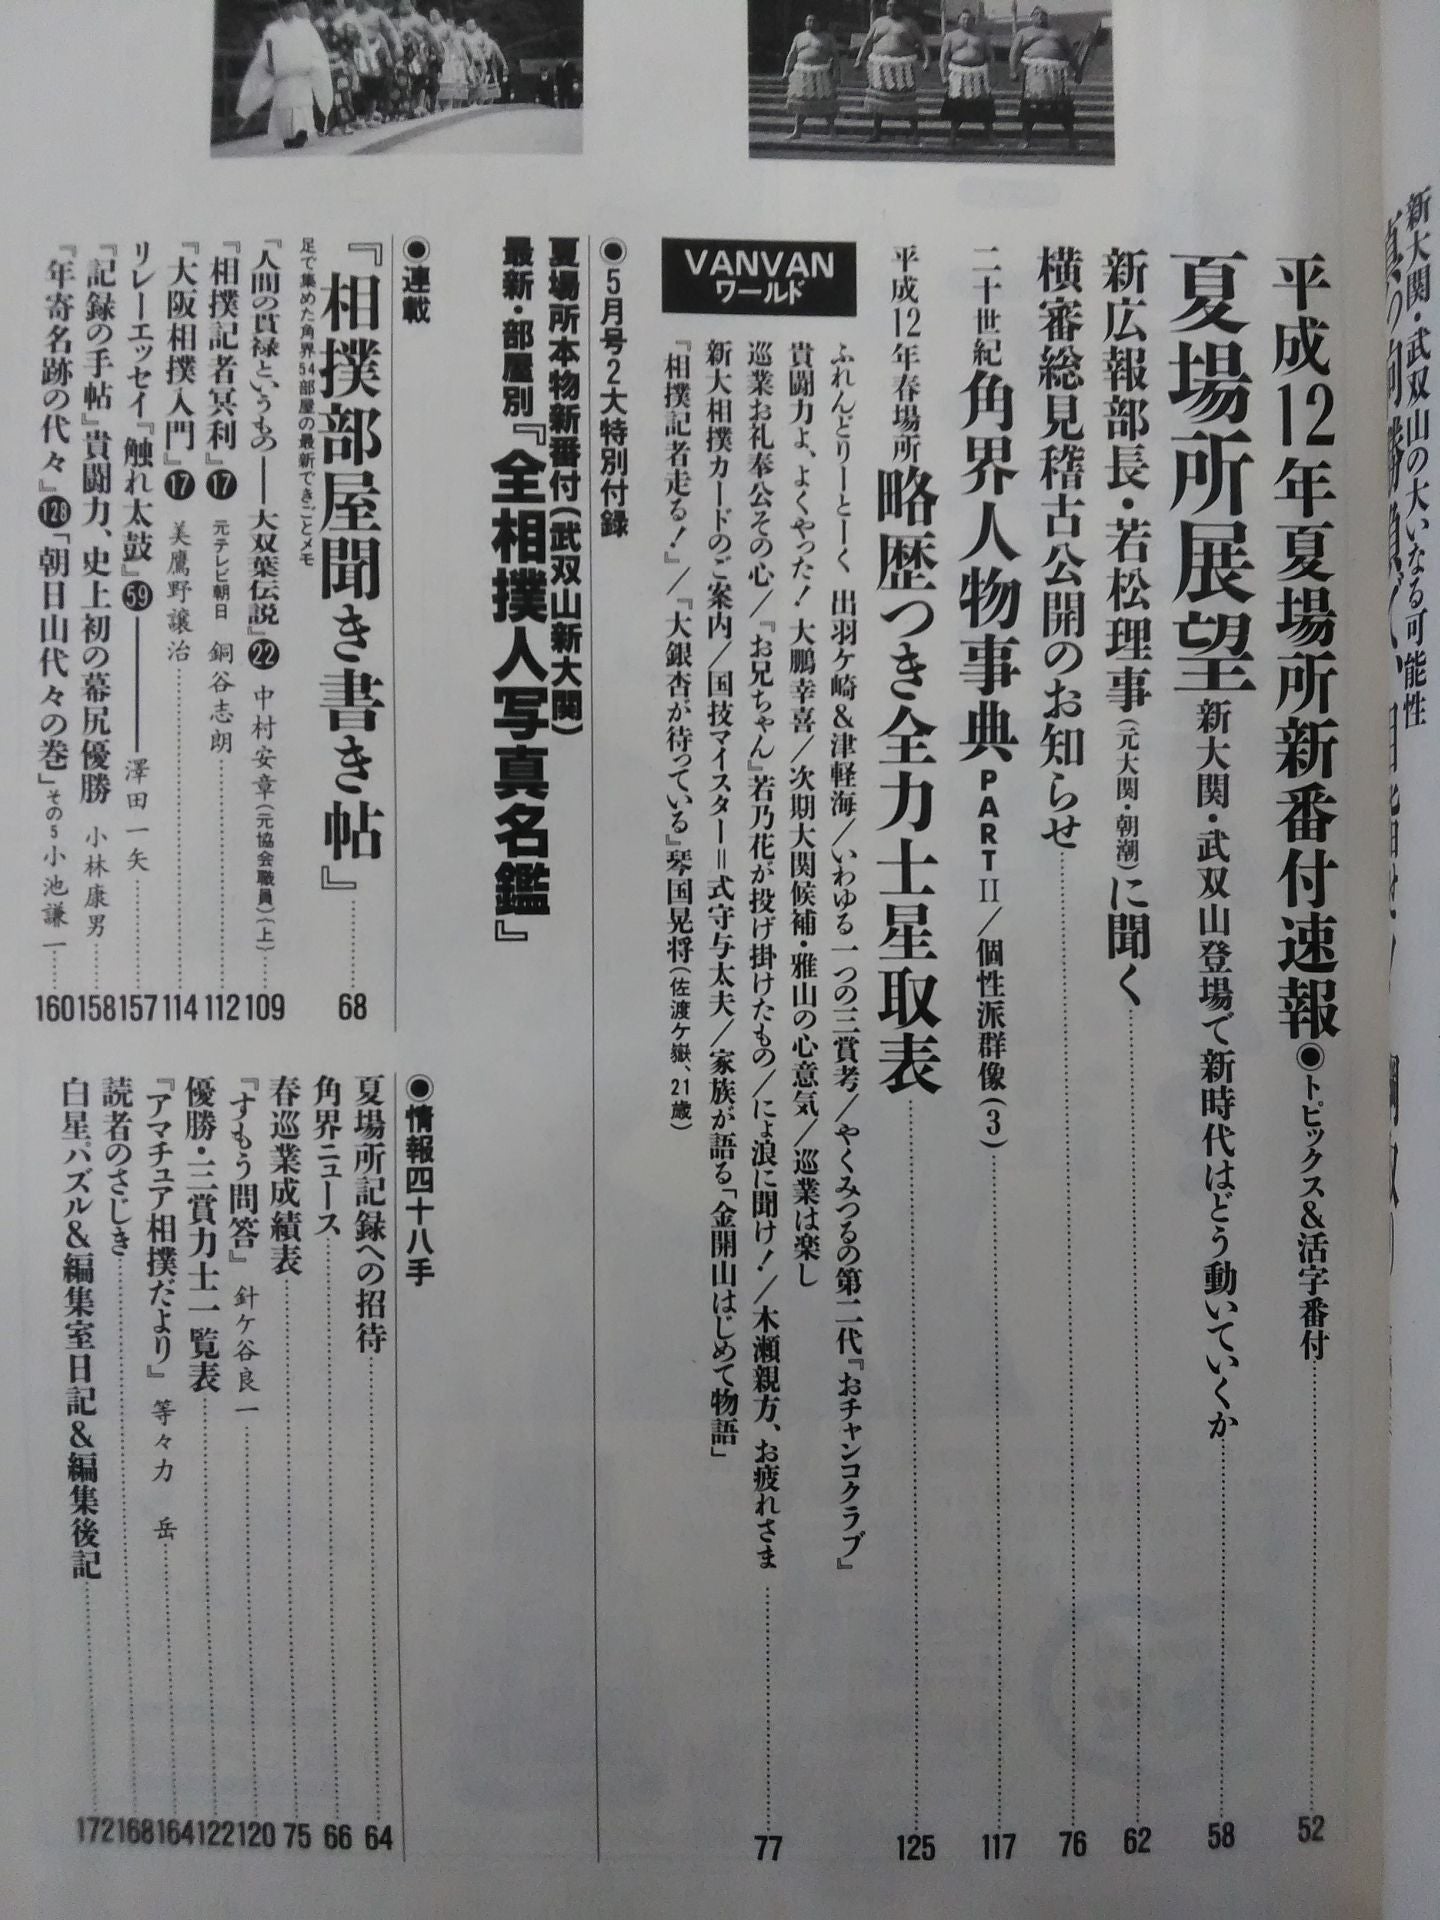 新大関・武双山の大いなる可能性
平成12年夏場所新番付速報●トピックス&活字番付 52
夏場所展望 新大関・武双山登場で新時代はどう動いていくか 58
新広報部長・若松理事(元大関・朝潮)に聞く 62
横審総見稽古公開のお知らせ 76
二十世紀 角界人物事典 PARTⅡ/個性派群像(3) 117
平成12年春場所 略歴つき全力士星取表 125
VANVAN
ワールド
ふれんどりーとーく 出羽ケ崎&津軽海/いわゆる一つの三賞考/やくみつるの第二代『おチャンコクラブ』
貴闘力よ、よくやった!大鵬幸喜/次期大関候補・雅山の心意気/巡業は楽し
巡業お礼奉公その心/『お兄ちゃん』若乃花が投げ掛けたもの/によ浪に聞け!/木瀬親方、お疲れさま 77
新大相撲カードのご案内/国技マイスター=式守与太夫/家族が語る「金開山はじめて物語」
『相撲記者走る!』/『大銀杏が待っている』琴国晃将(佐渡ケ嶽、21歳)
●5月号2大特別付録
夏場所本物新番付(武双山新大関)
最新・部屋別『全相撲人写真名鑑』
●連載
『相撲部屋聞き書き帖』 68
足で集めた角界54部屋の最新できごとメモ
『人間の貫禄というもの──大双葉伝説』22 中村安章(元協会職員)(上) 109
『相撲記者冥利』17 元テレビ朝日 銅谷志朗 112
『大阪相撲入門』17 美鷹野譲治 114
リレーエッセイ『触れ太鼓』59──澤田一矢 157
『記録の手帖』貴闘力、史上初の幕尻優勝 小林康男 158
『年寄名跡の代々』128「朝日山代々の巻」その5 小池謙一 160
●情報四十八手
夏場所記録への招待 64
角界ニュース 66
春巡業成績表 75
『すもう問答』 針ケ谷良一 120
優勝・三賞力士一覧表 122
『アマチュア相撲だより』 等々力 岳 164
読者のさじき 168
白星パズル&編集室日記&編集後記 172